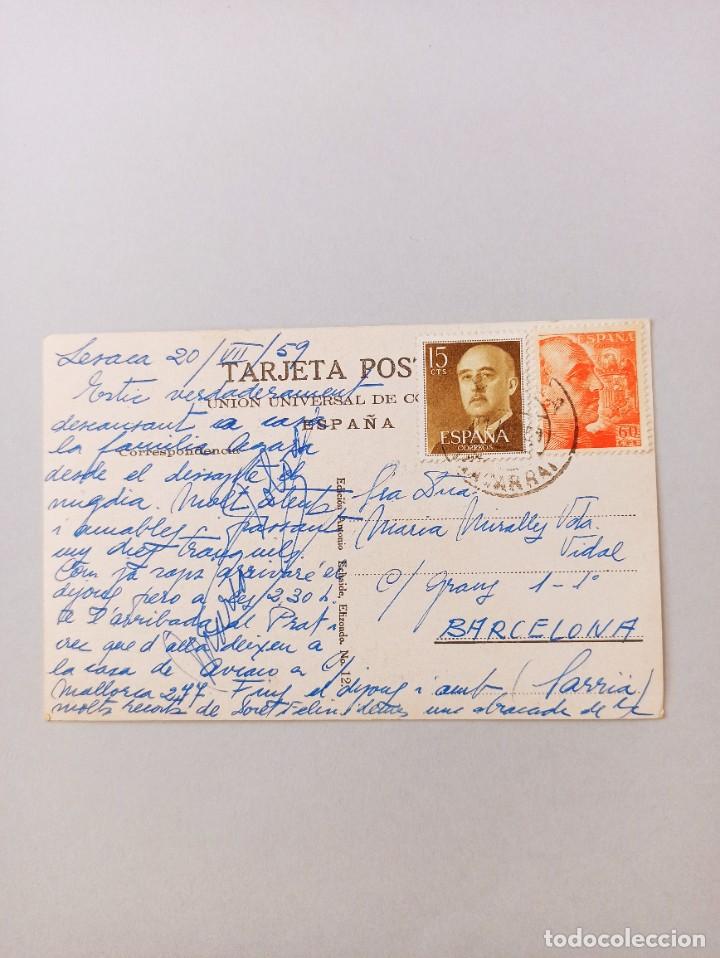 Lesaca 20/VII/59
TARJETA POST
Estic verdaderament
UNION UNIVERSAL DE CO
descansant a casa
ESPAÑA
la familia
Correspondencia
desde el dissapte al
migdia. Molt atents
i amables, passant
uns dies tranquils.
Com ja saps arrivaré el
dijous pero a les 2,30 h.
d'arribada al Prat i
crec que d'allà deixen a
la casa de Aviacio a c/
Mallorca 277 Fins el dijous i amb
molts records de una abraçada de
Edición Antonio Echaide, Elizondo. No. 12
15
CTS
ESPAÑA
CORREOS
ESPAÑA
60
CTS
NAVARRA
Sra Dña
Maria Miralles Vda.
Vidal
C/ Granj 1-1º
BARCELONA
(Sarriá)
todocoleccion
todocoleccion.net